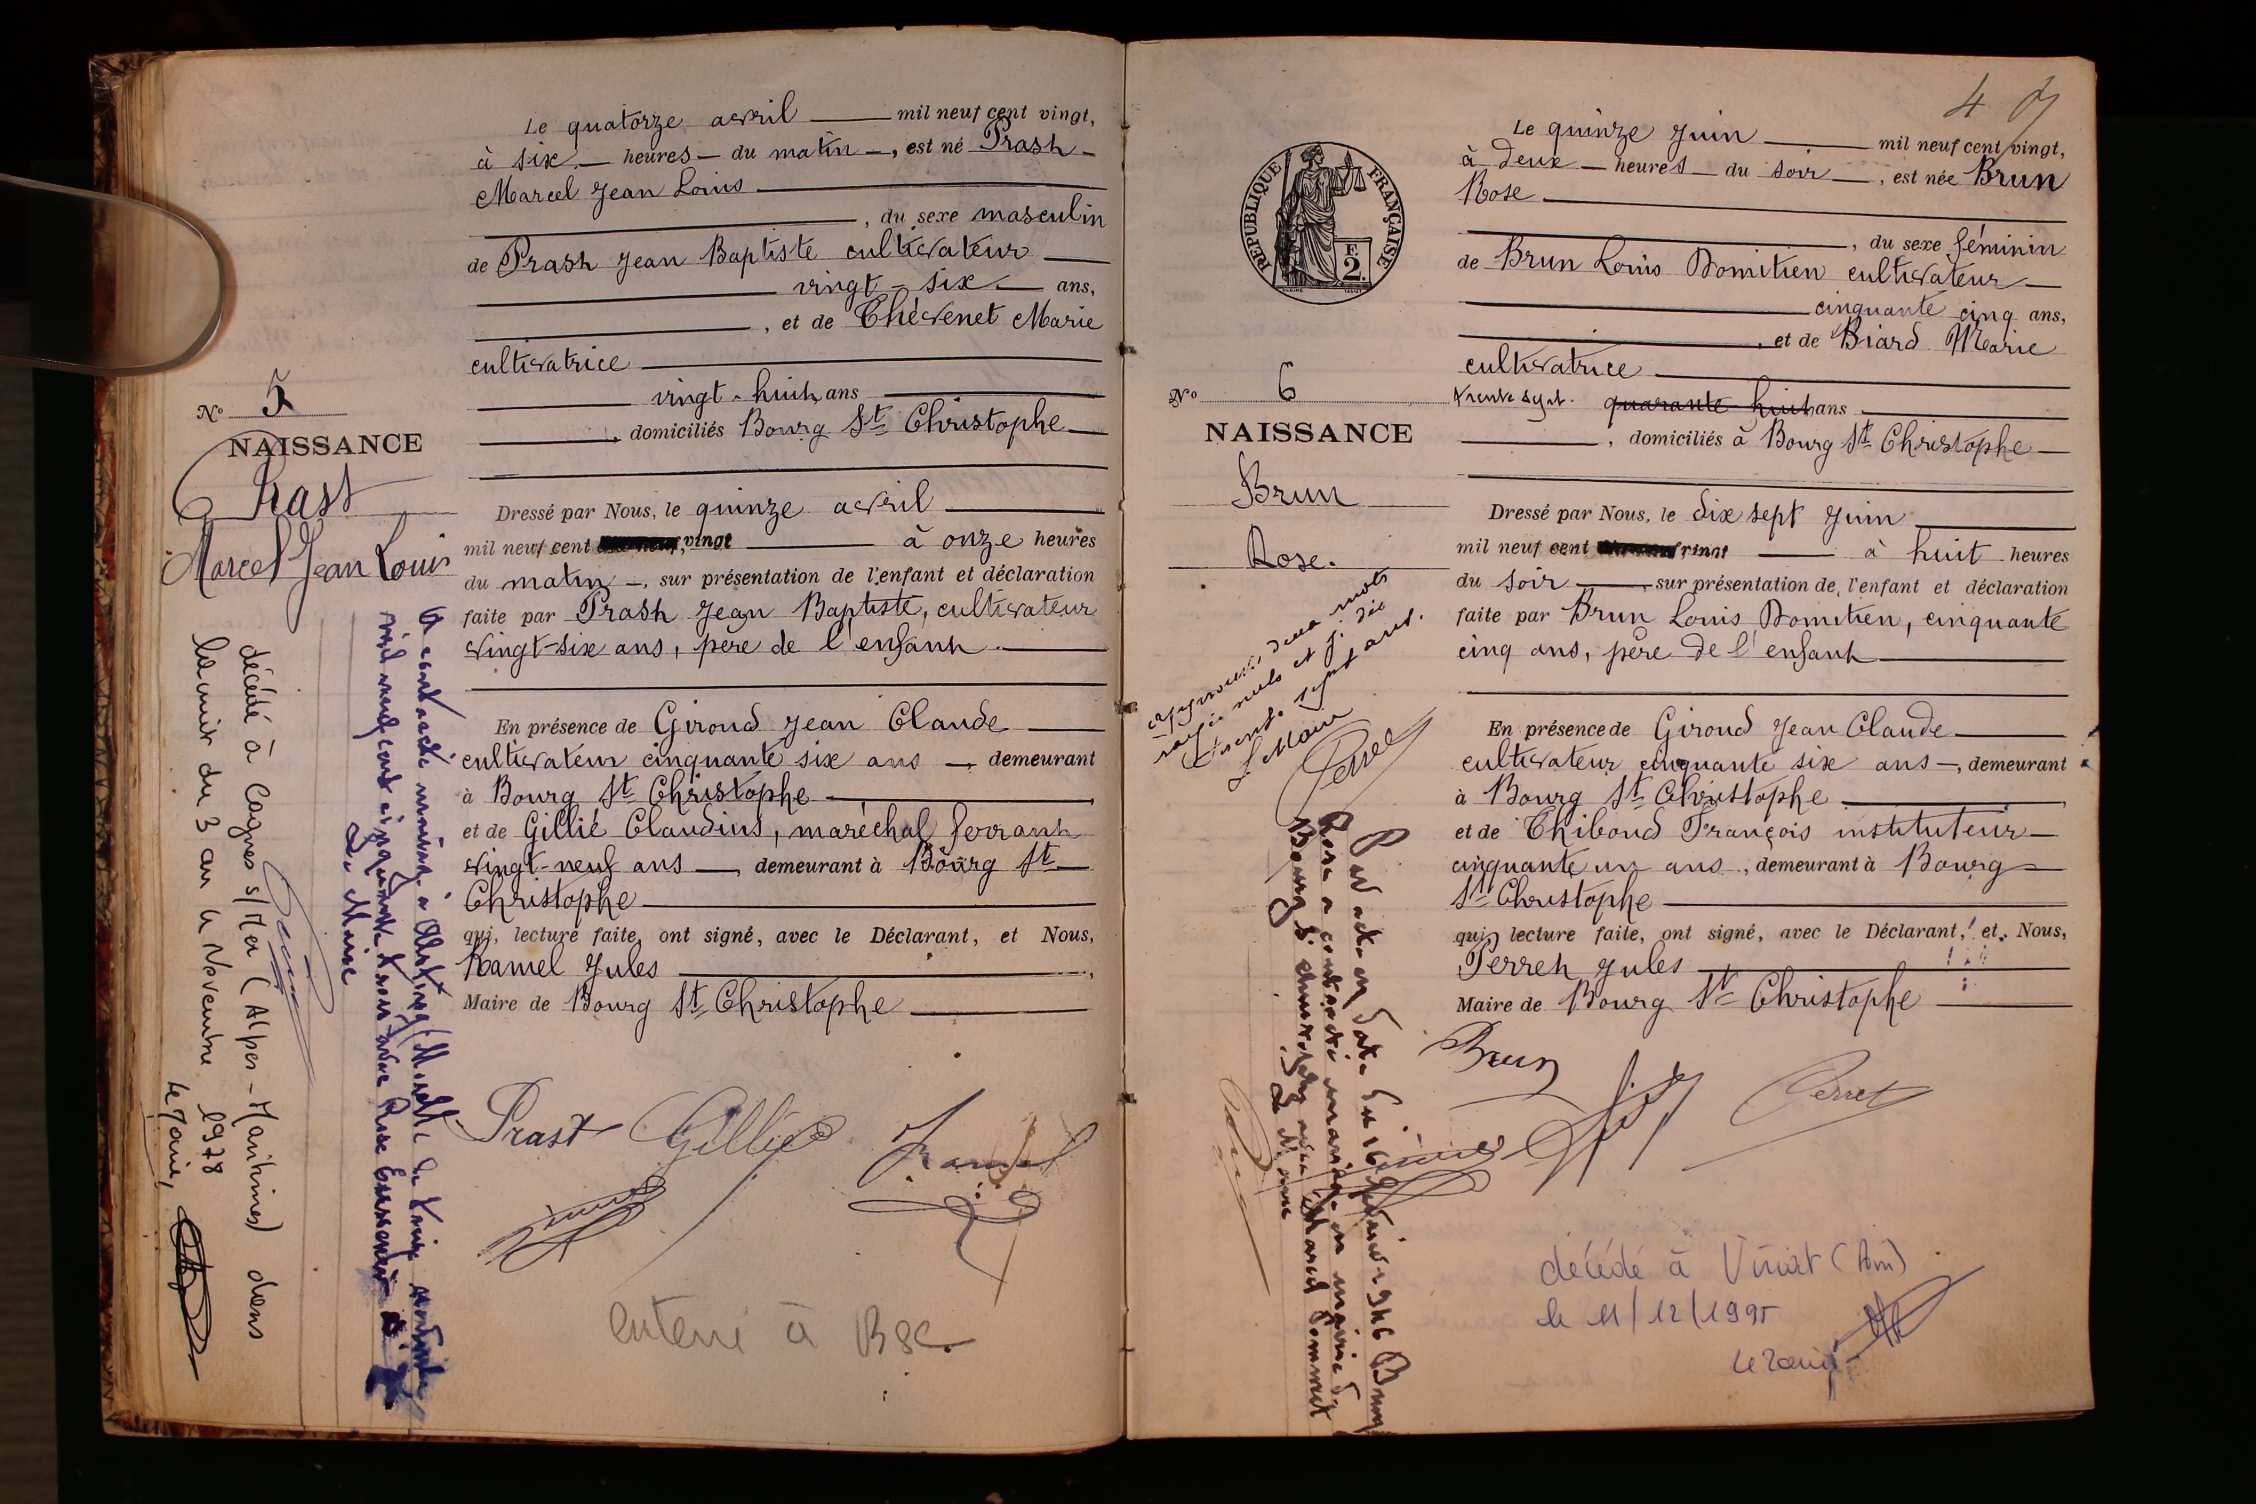 Nº 5
NAISSANCE
Prast
Marcel Jean Louis
Le quatorze avril mil neuf cent vingt,
à six heures du matin, est né Prast
Marcel Jean Louis
, du sexe masculin
de Prast Jean Baptiste cultivateur
vingt-six ans,
, et de Thévenet Marie
cultivatrice
vingt-huit ans
, domiciliés Bourg St Christophe
Dressé par Nous, le quinze avril
mil neuf cent vingt à onze heures
du matin, sur présentation de l'enfant et déclaration
faite par Prast Jean Baptiste, cultivateur
vingt-six ans, père de l'enfant
En présence de Giroud Jean Claude
cultivateur cinquante six ans, demeurant
à Bourg St Christophe
et de Gillié Claudius, maréchal ferrant
vingt-neuf ans, demeurant à Bourg St
Christophe
qui, lecture faite, ont signé, avec le Déclarant, et Nous,
Hamel Jules,
Maire de Bourg St Christophe
Prast Gillié Hamel
A contracté mariage à (Moselle) le
mil neuf cent cinquante avec Rose
Le Maire
décédé à Cagnes s/Mer (Alpes-Maritimes) dans
la nuit du 3 au 4 Novembre 1978
Le Maire,
enterré à BSC.
4
RÉPUBLIQUE FRANÇAISE
E
2.
Nº 6
NAISSANCE
Brun
Rose.
approuvés deux mots
rayés nuls et
trente sept ans.
Le Maire
Perret
Le quinze Juin mil neuf cent vingt,
à deux heures du soir, est née Brun
Rose
, du sexe féminin
de Brun Louis Domitien cultivateur
cinquante cinq ans,
, et de Biard Marie
cultivatrice
trente sept. quarante huit ans
, domiciliés à Bourg St Christophe
Dressé par Nous, le dix sept Juin
mil neuf cent vingt à huit heures
du soir, sur présentation de l'enfant et déclaration
faite par Brun Louis Domitien, cinquante
cinq ans, père de l'enfant
En présence de Giroud Jean Claude
cultivateur cinquante six ans, demeurant
à Bourg St Christophe
et de Thiboud François instituteur
cinquante un ans, demeurant à Bourg
St Christophe
qui, lecture faite, ont signé, avec le Déclarant, et Nous,
Perret Jules
Maire de Bourg St Christophe
Brun Perret
Par acte en date du 16 1946 Brun
Rose a contracté mariage en mairie de
Bourg St Christophe avec Marcel
Le Maire
décédé à Viriat (Ain)
le 11/12/1995
Le Maire